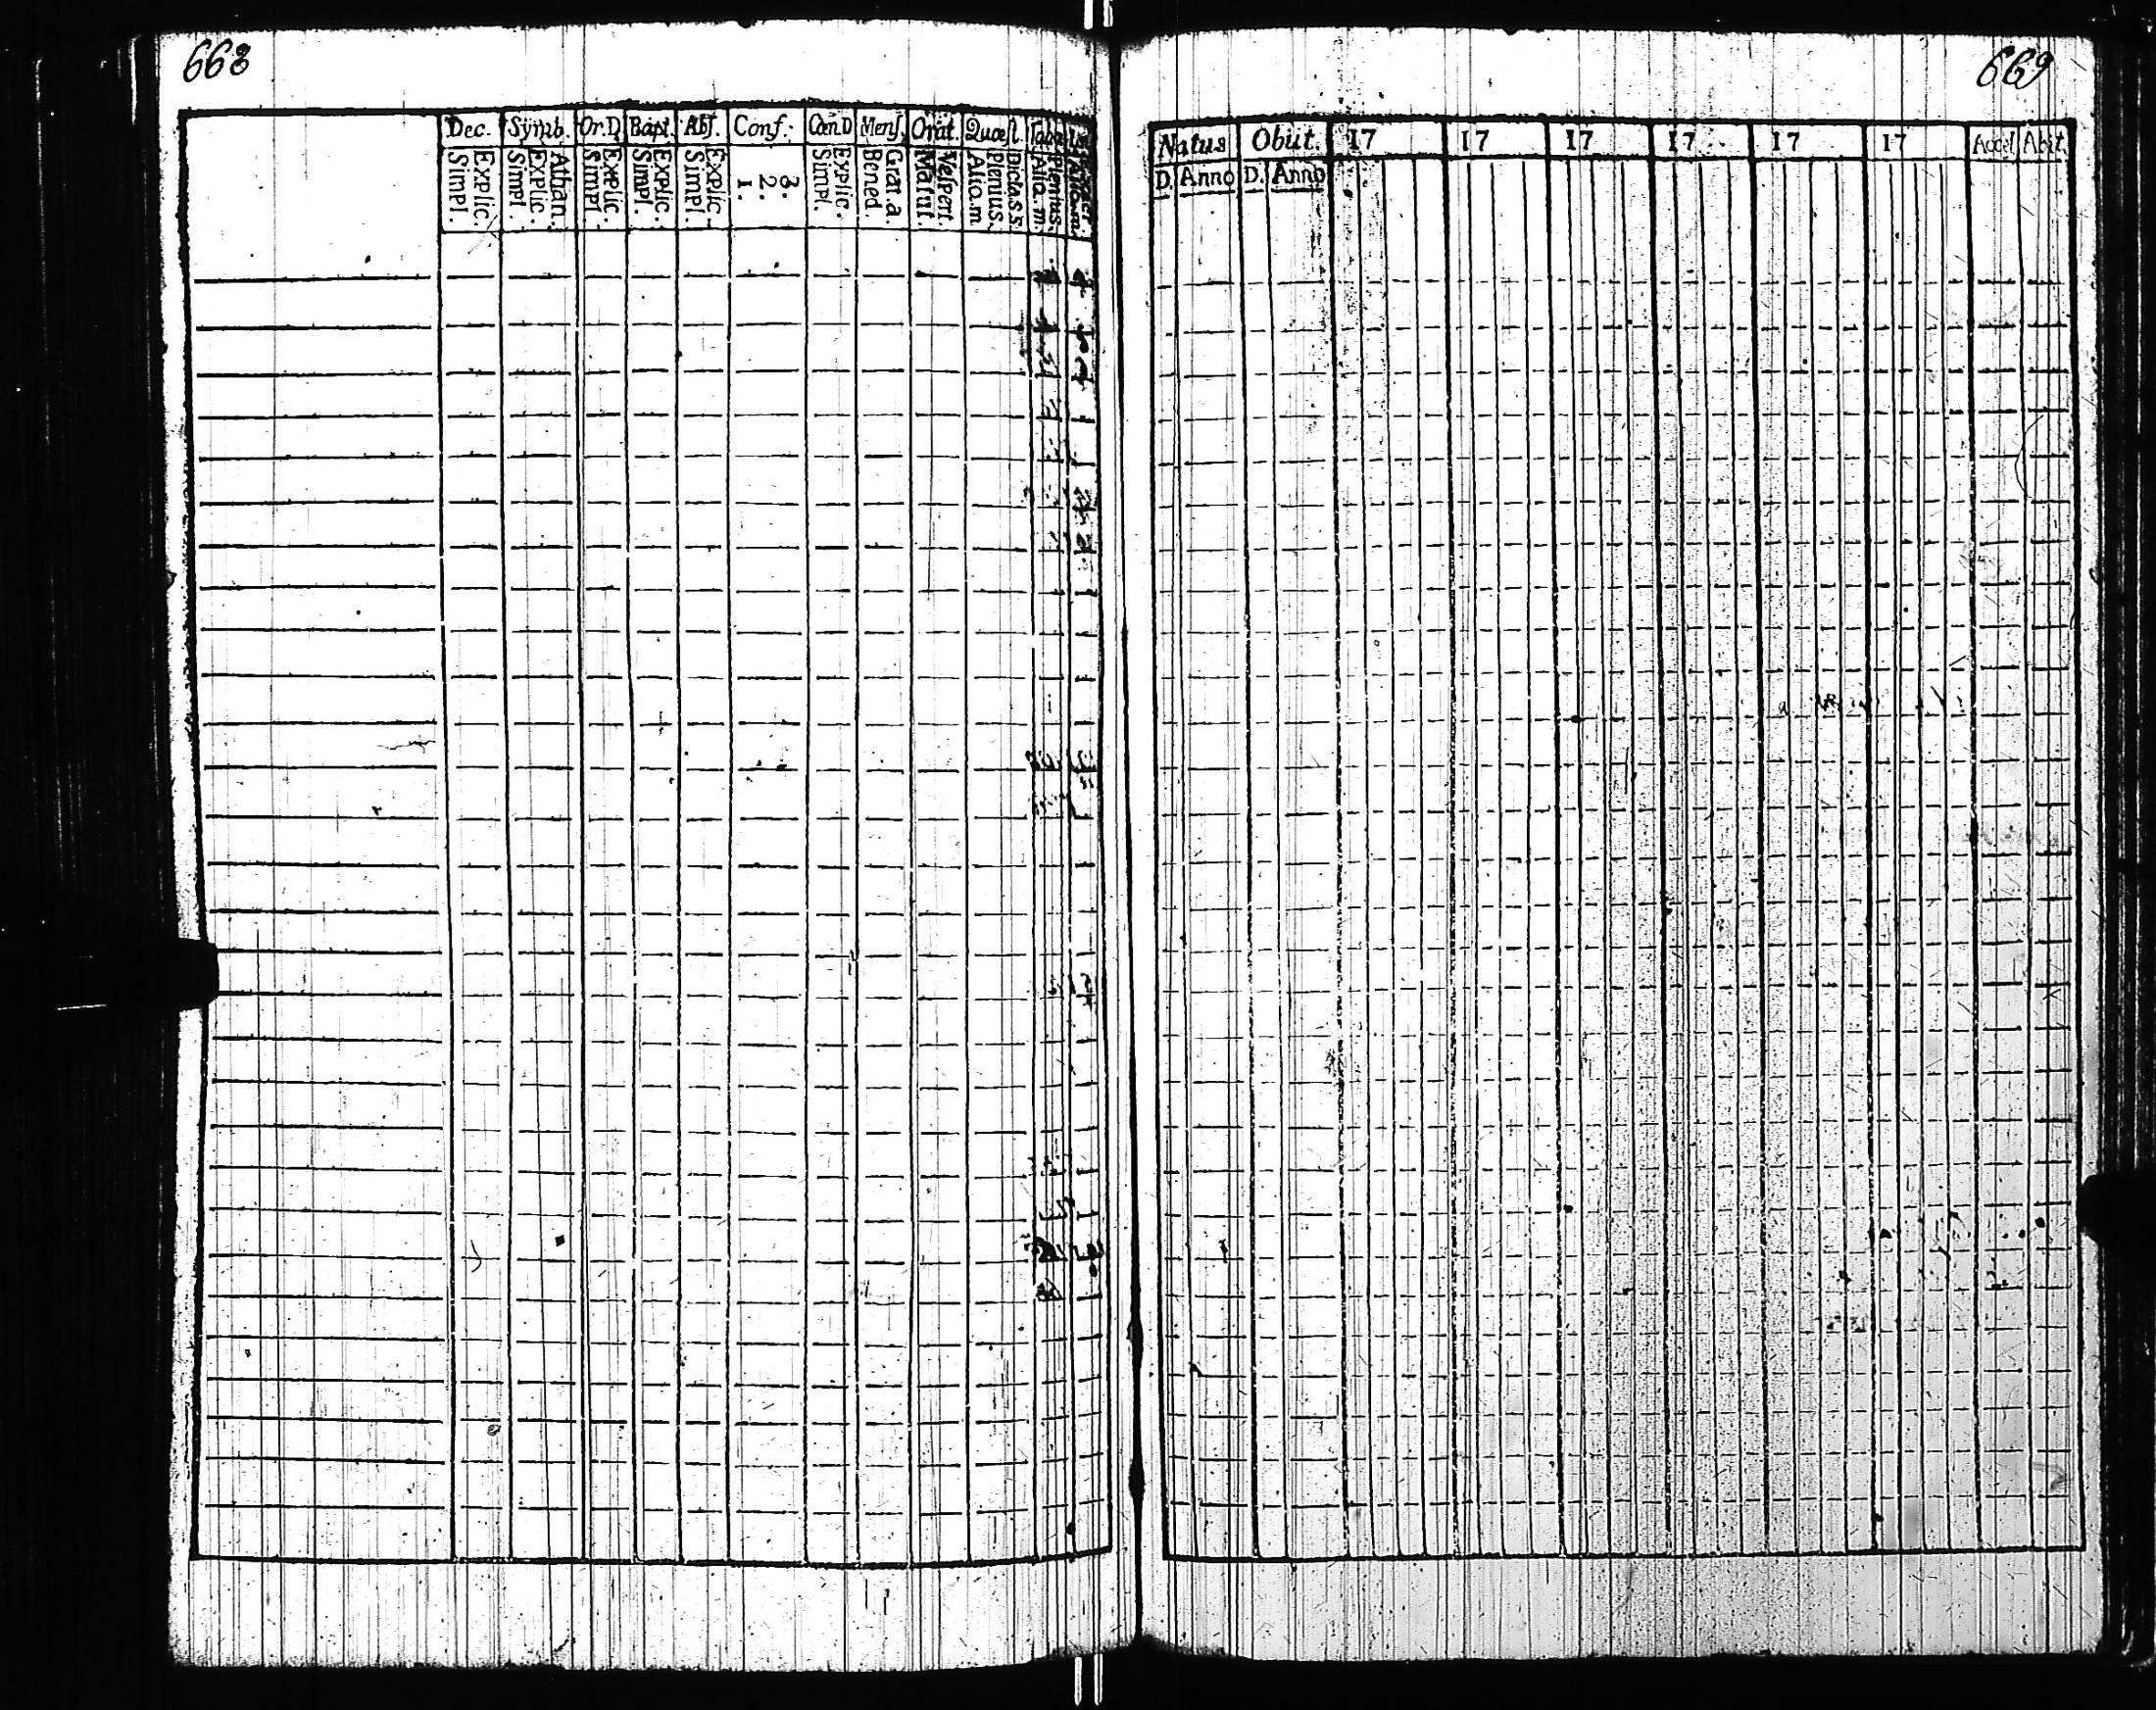 668
Dec. Symb. Or.D. Bapt. Abs. Conf: Cœn.D Mens. Orat. Quæst. Tab.
Explic. Simpl.
Athan. Explic. Simpl.
Explic. Simpl.
Explic. Simpl.
Explic. Simpl.
3. 2. 1.
Explic. Simpl.
Grat.a. Bened.
Vespert. Matut.
Dicta.SS. Plenius. Alio.m
Plenius. Alio.m.
669
Natus Obiit. 17 17 17 17 17 17 Acced Abit.
D. Anno D. Anno